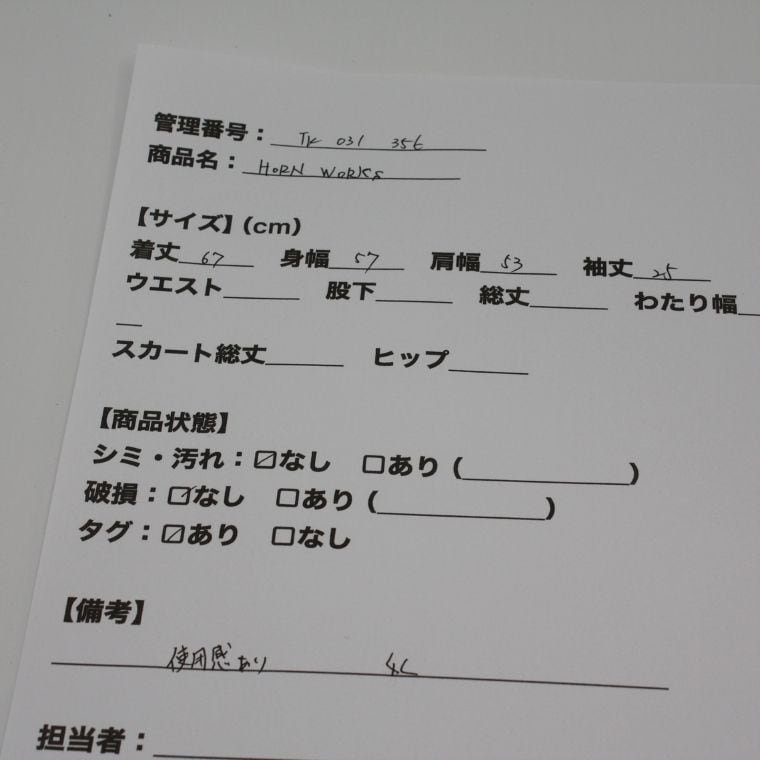 管理番号：TK 031 356
商品名：HORN WORKS
【サイズ】(cm)
着丈 67 身幅 57 肩幅 53 袖丈 25
ウエスト＿＿＿ 股下＿＿＿ 総丈＿＿＿ わたり幅＿
＿
スカート総丈＿＿＿ ヒップ＿＿＿
【商品状態】
シミ・汚れ：☑なし □あり（＿＿＿＿＿＿）
破損：☑なし □あり（＿＿＿＿＿＿）
タグ：☑あり □なし
【備考】
使用感あり 4L
担当者：